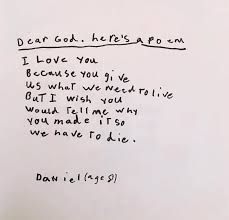 Dear God. here's a poem
I Love you
Because you give
us what we need to live
But I wish you
would tell me why
you made it so
we have to die.
Daniel (age 8)